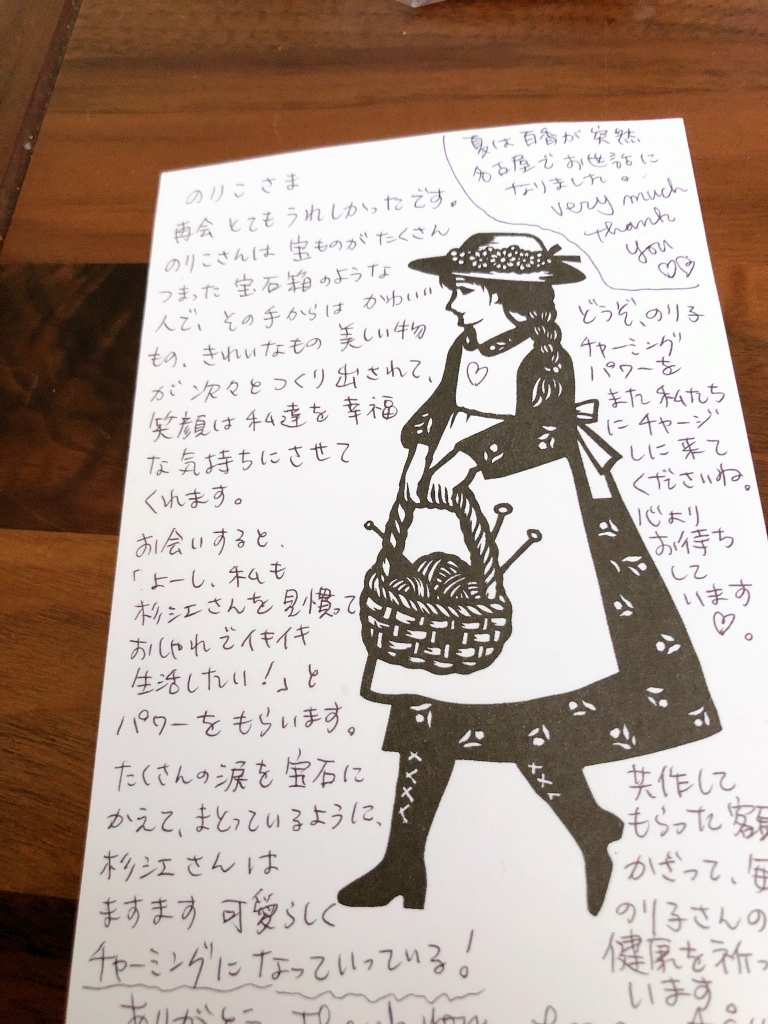 のりこさま
再会とてもうれしかったです。
のりこさんは宝ものがたくさん
つまった宝石箱のような
人で、その手からはかわいい
もの、きれいなもの美しい物
が次々とつくり出されて、
笑顔は私達を幸福
な気持ちにさせて
くれます。
お会いすると、
「よーし、私も
杉江さんを見慣って
おしゃれでイキイキ
生活したい!」と
パワーをもらいます。
たくさんの涙を宝石に
かえて、まとっているように、
杉江さんは
ますます可愛らしく
チャーミングになっていっている!
ありがとう Thank you
夏は百香が突然
名古屋でお世話に
なりました。
very much
thank
you
どうぞ、のり子
チャーミング
パワーを
また私たち
にチャージ
しに来て
くださいね。
心より
お待ち
して
います♡。
共作して
もらった額
かざって、毎
のり子さんの
健康を祈っ
います。